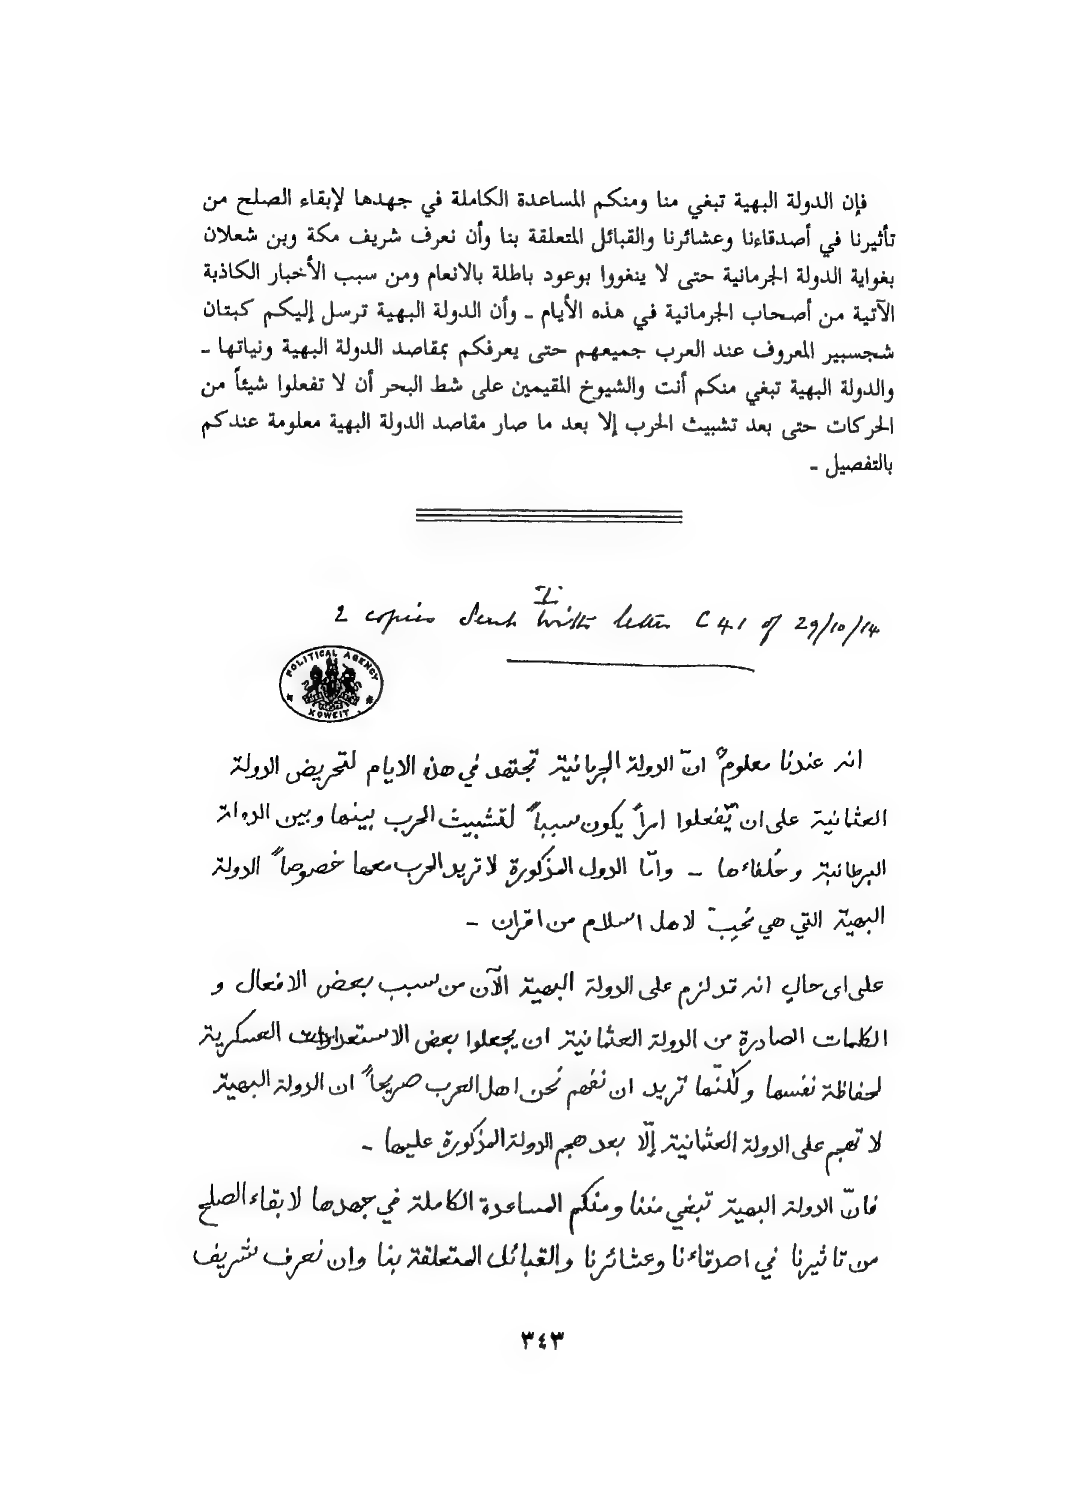 فإن الدولة البهية تبغي منا ومنكم المساعدة الكاملة في جهدها لإبقاء الصلح من
تأثيرنا في أصدقاءنا وعشائرنا والقبائل المتعلقة بنا وأن نعرف شريف مكة وبن شعلان
بغواية الدولة الجرمانية حتى لا ينغووا بوعود باطلة بالانعام ومن سبب الأخبار الكاذبة
الآتية من أصحاب الجرمانية في هذه الأيام ـ وأن الدولة البهية ترسل إليكم كبتان
شجسبير المعروف عند العرب جميعهم حتى يعرفكم بمقاصد الدولة البهية ونياتها ـ
والدولة البهية تبغي منكم أنت والشيوخ المقيمين على شط البحر أن لا تفعلوا شيئاً من
الحركات حتى بعد تشبيث الحرب إلا بعد ما صار مقاصد الدولة البهية معلومة عندكم
بالتفصيل ـ
I
2 copies sent with letter C 41 of 29/10/14
POLITICAL AGENCY
KOWEIT
انه عندنا معلومٌ انّ الدولة الجرمانية تجتهد في هذه الايام لتحريض الدولة
العثمانية على ان يّفعلوا امراً يكون سبباً لتشبيث الحرب بينها وبين الدولة
البرطانية وحُلفاءها ـ وامّا الدول المذكورة لا تريد الحرب معها خصوصاً الدولة
البهيّة التي هي مُحِبّ لاهل اسلام من اقران ـ
على اى حالٍ انه قد لزم على الدولة البهية الآن من سبب بعض الافعال و
الكلمات الصادرة من الدولة العثمانية ان يجعلوا بعض الاستعدادات العسكرية
لحفاظة نفسها ولٰكنّها تريد ان نفهم نحن اهل العرب صريحاً ان الدولة البهية
لا تهجم على الدولة العثمانية إلّا بعد هجم الدولة المذكورة عليها ـ
فانّ الدولة البهية تبغي مننا ومنكم المساعدة الكاملة في جهدها لابقاء الصلح
من تاثيرنا في اصدقاءنا وعشائرنا والقبائل المتعلقة بنا وان نعرف شريف
٣٤٣